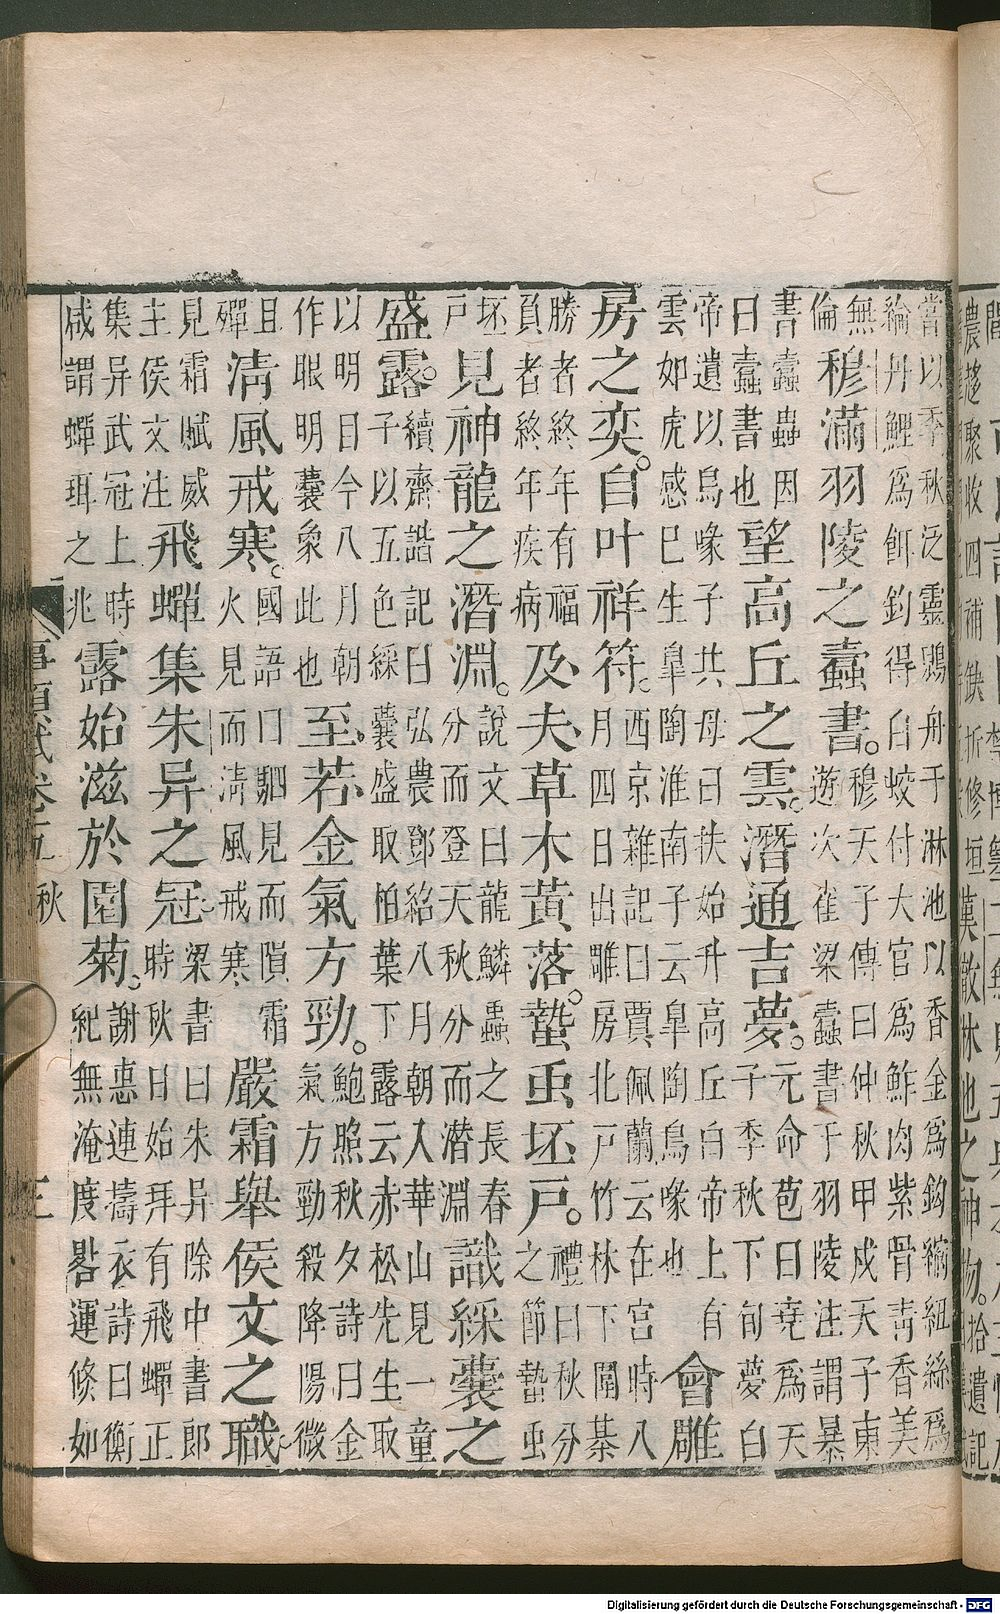 嘗以季秋泛靈鶂舟于淋池以香金為鈎縮紐絲為
綸丹鯉為餌釣得白蛟付大官為鮓肉紫骨靑香美
無
倫
穆滿羽陵之蠹書。
穆天子傳曰仲秋甲戍天子東
遊次雀梁蠹書于羽陵注謂暴
書蠹蟲因
曰蠹書也
望高丘之雲。潛通吉夢。
元命苞曰堯為天
子季秋下旬夢白
帝遺以鳥喙子其母曰扶始升高丘白帝上有
雲如虎感已生皐陶淮南子云皐陶鳥喙也
會雕
房之奕。自叶祥符。
西京雜記曰賈佩蘭云在宮時八
月四日出雕房北戸竹林下圍棊
勝者終年有福
負者終年疾病
及夫草木黃落。蟄虫坯戸。
禮曰秋分
之節蟄虫
坯
戸
見神龍之潛淵。
說文曰龍鱗蟲之長春
分而登天秋分而潛淵
識綵囊之
盛露。
續齊諧記曰弘農鄧紹八月朝入華山見一童
子以五色綵囊盛取柏葉下露云赤松先生取
以明目今八月朝
作眼明囊象此也
至若金氣方勁。
鮑照秋夕詩曰金
氣方勁殺降陽微
且
殫
清風戒寒。
國語曰駟見而隕霜
火見而淸風戒寒
嚴霜舉侯文之職
見霜賦威
主侯文注
飛蟬集朱异之冠。
梁書曰朱异除中書郎
時秋日始拜有飛蟬正
集异武冠上時
咸謂蟬珥之兆
露始滋於園菊。
謝惠連擣衣詩曰衡
紀無淹度晷運倐如
事類賦卷五 秋 三
Digitalisierung gefördert durch die Deutsche Forschungsgemeinschaft - DFG